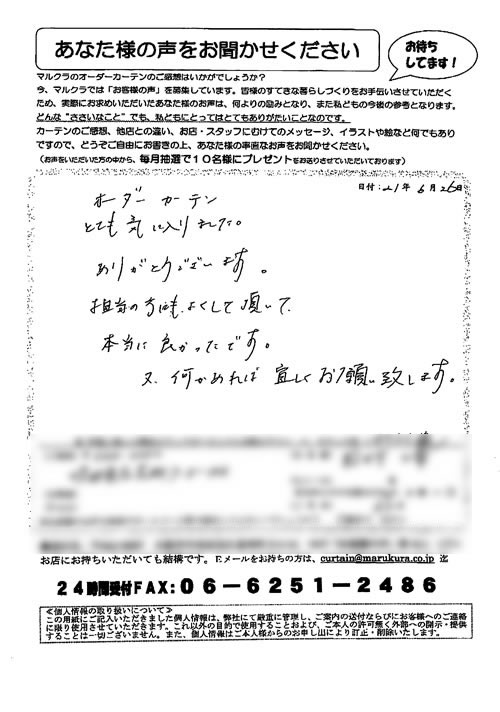 あなた様の声をお聞かせください
お待ち
してます!
マルクラのオーダーカーテンのご感想はいかがでしょうか?
今、マルクラでは「お客様の声」を募集しています。皆様のすてきな暮らしづくりをお手伝いさせていただく
ため、実際にお求めいただいたあなた様のお声は、何よりの励みとなり、また私どもの今後の参考となります。
どんな“ささいなこと”でも、私どもにとってはとてもありがたいことなのです。
カーテンのご感想、他店との違い、お店・スタッフにむけてのメッセージ、イラストや絵など何でもあり
ですので、どうぞご自由にお書きの上、あなた様の率直なお声をお聞かせください。
(お声をいただいた方の中から、毎月抽選で10名様にプレゼントをお送りさせていただいております)
日付:21年 6月 26日
オーダー カーテン
とても 気に入りました。
ありがとうございます。
担当の方にも、よくして頂いて、
本当に 良かったです。
又、何かあれば 宜しくお願い致します。
お店にお持ちいただいても結構です。Eメールをお持ちの方は、curtain@marukura.co.jp 迄
24時間受付FAX:06-6251-2486
≪個人情報の取り扱いについて≫
この用紙にご記入いただきました個人情報は、弊社にて厳重に管理し、ご案内の送付ならびにお客様へのご連絡
に限り使用させていただきます。これ以外の目的で使用することおよび、ご本人の許可無く外部への開示・提供
することは一切ございません。また、個人情報はご本人様からのお申し出により訂正・削除いたします。